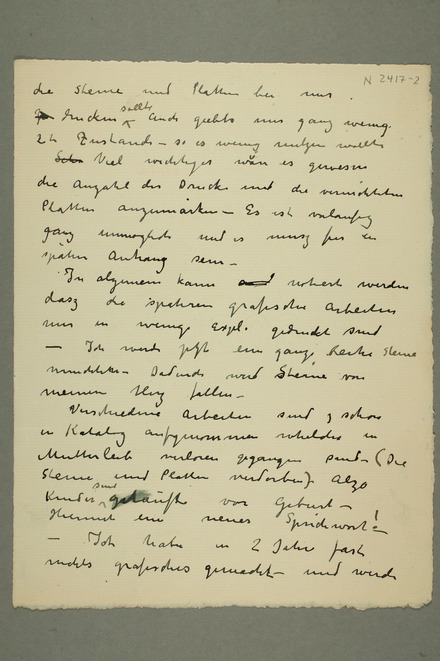 N 2417-2
die Steine und Platten bei mir.
drucken sollte. Auch giebts nur ganz wenig
2te Zustands – so es wenig nutzen wollte
Viel wichtiger wäre es gewesen
die Anzahl der Drucke und die vernichteten
Platten anzumerken – Es ist vorläufig
ganz unmöglich und es musz für ein
später Anhang sein –
In algemein kann notiert werden
dasz die späteren grafische Arbeiten
nur in wenige Expl. gedruckt sind
– Ich werde jetzt eine ganze Steine
vernichten – Dadurch wird Steine von
meinem Herz fallen –
Verschiedene Arbeiten sind schon
in Katalog aufgenommen welche in
Mutterleib verloren gegangen sind – (Die
Steine und Platten verdorben). Also
Kinder sind getauft vor Geburt –
Hiermit eine neues Sprichwort! –
– Ich habe in 2 Jahr fast
nichts grafisches gemacht – und werde